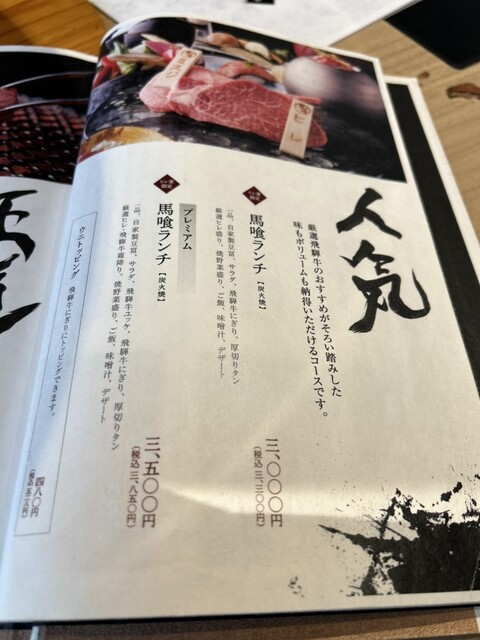 人気
厳選飛騨牛のおすすめがそろい踏みした
味もボリュームも納得いただけるコースです。
馬喰ランチ【炭火焼】
一品、自家製豆富、サラダ、飛騨牛にぎり、厚切りタン
厳選ヒレ盛り、焼野菜盛り、ご飯、味噌汁、デザート
三、〇〇〇円
(税込 三、三〇〇円)
プレミアム
馬喰ランチ【炭火焼】
一品、自家製豆富、サラダ、飛騨牛ユッケ、飛騨牛にぎり、厚切りタン
厳選ヒレ・飛騨牛霜降り、焼野菜盛り、ご飯、味噌汁、デザート
三、五〇〇円
(税込 三、八五〇円)
ウニトッピング 飛騨牛にぎりにトッピングできます。
四八〇円
(税込 五二八円)
ヒレ